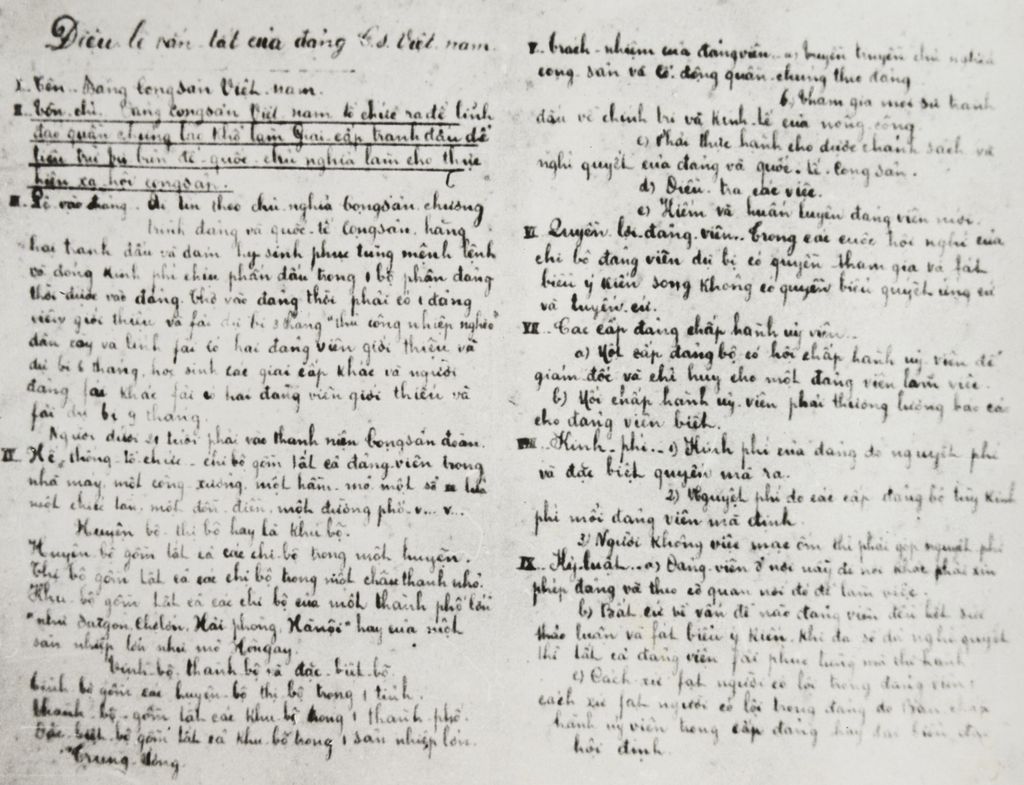 Điều lệ vắn tắt của đảng C.S. Việt nam
I. Tên.. Đảng Cộngsản Việt nam.
II. Tôn chỉ. Đảng Cộngsản Việt nam tổ chức ra để lĩnh
đạo quần chúng lao khổ làm Giai cấp tranh đấu để
tiêu trừ tư bản đế quốc chủ nghĩa làm cho thực
hiện xã hội cộngsản.
III. Lệ vào đảng. Ai tin theo chủ nghĩa Cộngsản chương
trình đảng và quốc tế Cộngsản, hăng
hái tranh đấu và dám hy sinh phục tùng mệnh lệnh
và đóng kinh phí chịu phấn đấu trong 1 bộ phận đảng
thời được vào đảng. Chỗ vào đảng thời phải có 1 đảng
viên giới thiệu và fải dự bị 3 tháng "thủ công nghiệp nghèo"
dân cày và lính fải có hai đảng viên giới thiệu và
dự bị 6 tháng, học sinh các giai cấp khác và người
đảng fái khác fải có hai đảng viên giới thiệu và
fải dự bị 9 tháng.
Người dưới 21 tuổi phải vào thanh niên Cộngsản đoàn.
IV. Hệ thống tổ chức.. chi bộ gồm tất cả đảng viên trong
nhà máy, một công xưởng, một hầm mỏ, một sở
một chiếc tàu, một đồn điền, một đường phố v... v...
Huyện bộ, thị bộ hay là khu bộ.
Huyện bộ gồm tất cả các chi bộ trong một huyện.
Thị bộ gồm tất cả các chi bộ trong một châu thành nhỏ.
Khu bộ gồm tất cả các chi bộ của một thành phố lớn
"như Saigon, Chợlớn, Hải phòng, Hànội" hay của một
sản nghiệp lớn như mỏ Hòngay.
Tỉnh bộ, thành bộ và đặc biệt bộ.
Tỉnh bộ gồm các huyện bộ thị bộ trong 1 tỉnh.
thành bộ gồm tất các khu bộ trong 1 thành phố.
Đặc biệt bộ gồm tất cả khu bộ trong 1 sản nghiệp lớn.
Trung ương
V. trách nhiệm của đảng viên.. a) tuyên truyền chủ nghĩa
cộng sản và cổ động quần chúng theo đảng
b) Tham gia mọi sự tranh
đấu về chính trị và kinh tế của nông công
c) Phải thực hành cho được chánh sách và
nghị quyết của đảng và quốc tế Cộng sản.
d) Điều tra các việc.
e) Kiếm và huấn luyện đảng viên mới.
VI. Quyền lợi đảng viên.. Trong các cuộc hội nghị của
chi bộ đảng viên dự bị có quyền tham gia và fát
biểu ý kiến song không có quyền biểu quyết ứng cử
và tuyển cử.
VII.. Các cấp đảng chấp hành uỷ viên..
a) Một cấp đảng bộ có hội chấp hành uỷ viên để
giám đốc và chỉ huy cho một đảng viên làm việc
b) Hội chấp hành uỷ viên phải thường thường báo cáo
cho đảng viên biết.
VIII.. Kinh phí... 1) Kinh phí của đảng do nguyệt phí
và đặc biệt quyên mà ra.
2) Nguyệt phí do các cấp đảng bộ tùy kinh
phí mỗi đảng viên mà định.
3) Người không việc mặc ốm thì phải góp nguyệt phí
IX.. Kỷ luật... a) Đảng viên ở nơi này đi nơi khác phải xin
phép đảng và theo cơ quan nơi đó để làm việc.
b) Bất cứ về vấn đề nào đảng viên đều hết sức
thảo luận và fát biểu ý kiến, khi đa số đã nghị quyết
thì tất cả đảng viên fải phục tùng mà thi hành
c) Cách xử fạt người có lỗi trong đảng viên:
cách xử fạt người có lỗi trong đảng do Ban chấp
hành uỷ viên trong cấp đảng hay đại biểu đại
hội định.